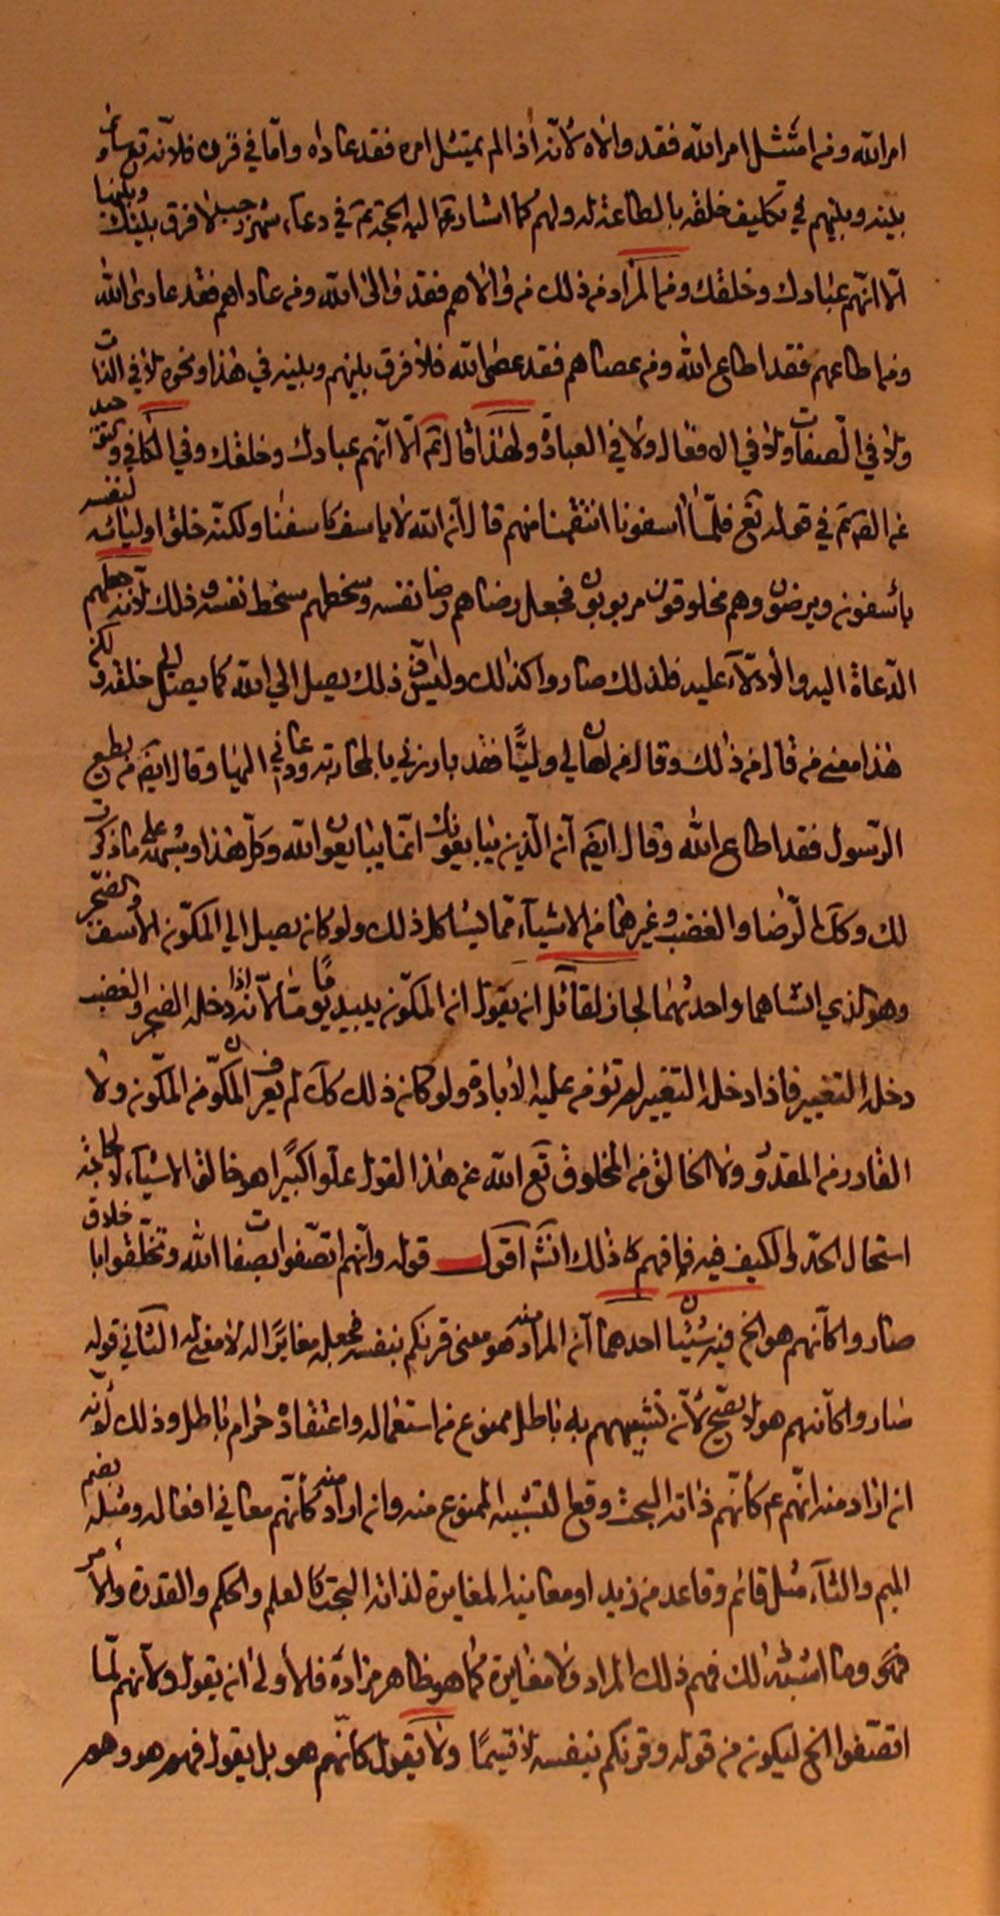 امر الله ومن امتثل امر الله فقد والاه لانه اذا لم يمتثل امره فقد عاداه واما في فلانه تع ساوى
بينه وبينهم في تكليف خلقه بالطاعة له ولهم كما اشار اليه الحجة ع في دعاء شهر رجب لا فرق بينك وبينها
الا انهم عبادك وخلقك ومن المراد من ذلك من والاهم فقد والى الله ومن عاداهم فقد عادى الله
ومن اطاعهم فقد اطاع الله ومن عصاهم فقد عصى الله فلا فرق بينهم وبينه في هذا ونحوه لا في الذات
ولا في الصفات ولا في الافعال ولا في العبادة ولهذا قال ع الا انهم عبادك وخلقك وفي الكافي والتوحيد
عن الصم ع في قوله تع فلما اسفونا انتقمنا منهم قال ان الله لا ياسف كاسفنا ولكنه خلق اولياء لنفسه
يأسفون ويرضون وهم مخلوقون مربوبون فجعل رضاهم رضا نفسه وسخطهم سخط نفسه وذلك لانه جعلهم
الدعاة اليه والادلاء عليه فلذلك صاروا كذلك وليس ذلك يصل الى الله كما يصل الى خلقه ولكن
هذا معنى من قال من ذلك وقال من اهان لي وليا فقد بارزني بالمحاربة ودعاني اليها وقال ايضم من يطع
الرسول فقد اطاع الله وقال ايضم ان الذين يبايعونك انما يبايعون الله وكل هذا وشبهه على ما ذكرت
لك وكك الرضا والغضب وغيرهما من الاشياء مما يشاكل ذلك ولو كان يصل الى المكون الاسف والضجر
وهو الذي انشاهما واحدثهما لجاز لقائل ان يقول ان المكون يبيد يوما ما لانه اذا دخله الضجر والغضب
دخله التغيير فاذا دخله التغيير لم تؤمن عليه الابادة ولو كان ذلك كك لم يعرف المكون من المكون ولا
القادر من المقدور ولا الخالق من المخلوق تع الله عن هذا القول علوا كبيرا هو خالق الاشياء لا لحاجة
استحال الحد والكيف فيه فافهم ذلك انش اقول قوله وانهم اتصفوا بصفات الله وتخلقوا باخلاقه
صاروا كانهم هو الخ فيه شيئان احدهما ان المراد منه هو معنى قرنكم بنفسه فجعل مغايرا له لا معنى له الثاني قوله
صاروا كانهم هو لا يصح لان تشبيههم به باطل ممنوع من استعماله واعتقاده حرام باطل وذلك لانه
ان اراد منه انهم ع كانهم ذاته البحت وقع التشبيه الممنوع منه وان اراد منه كانهم معاني افعاله ومثله بضم
الميم والثاء مثل قائم وقاعد من زيد او معانيه المغايرة لذاته البحت كالعلم والحكم والقدرة والامر
وما اشبه ذلك فهم ذلك المراد ولا مغايرة كما هو ظاهر مراده فالاولى ان يقول ولانهم لما
اتصفوا الخ ليكون من قوله وقرنكم بنفسه لا قسيما ولا يقول كانهم هو بل يقول فهم هو وهو